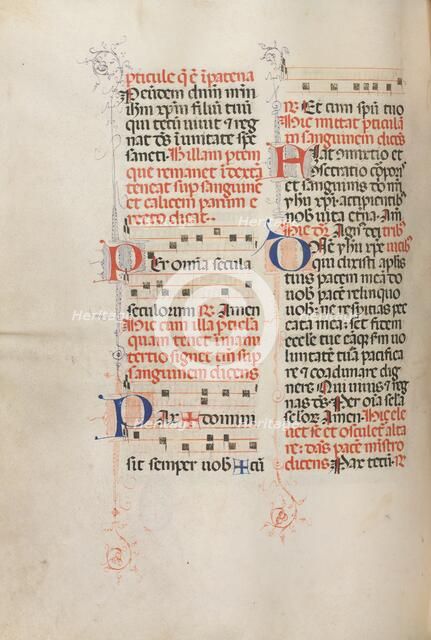 pticule q̄ ē ī patena
Peundem dnūm nr̄m
ihm xp̄m filiū tuū
qui tecū uiuit & reg
nat d̄s ī unitate sp̄s
sancti. Hi illam ptem
que remanet ī dextra
teneat sup sanguinē
et calicem parum e
recto dicat.
Per om̄ia secula
seculorum ℟ Amen
Hic cum illa pticula
quam tenet ī manu
tertio signet cm̄ sup
sanguinem dicens
Pax ✠ domini
sit semper uob ✠ cū
℟ Et cum spū tuo
Hic mittat pticulā
in sanguinem dicēs
et
secratio corpor
et sanguinis dn̄i nr̄i
yhu xp̄i accipientib
nob uitā etnā. Am̄
Hic dr̄ Agn̄ dei trib
Dn̄e yhu xp̄e uicib
qui dixisti aplis
tuis pacem meam do
uob pacem relinquo
uob ne respicias pec
cata mea: set fidem
ecclesie tue eāqz scdm uo
luntatē tuā pacifica
re & coadunare dig
neris Qui uiuis & reg
nas deus. Per oīa scla
sclor. Amen. Hic ele
uet se et osculet alta
re: dās pacē mīstro
dicens Pax tecū. ℟
Heritage
Heritage
Heritage
Heritage